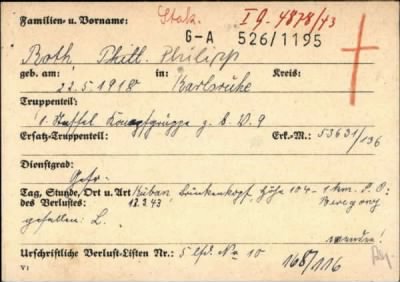 Familien- u. Vorname: Stak. I g. 4878/43
G-A 526/1195
Roth, Phil. Philipp
geb. am: in: Kreis:
22.5.1918 Karlsruhe
Truppenteil:
1. Staffel Kampfgruppe z. b. V. 9
Ersatz-Truppenteil: Erk.-M.: 53631/136
Dienstgrad:
Gefr.
Tag, Stunde, Ort u. Art Kuban, Brückenkopf, Höhe 104 - 1 km.
des Verlustes: 13.2.43
gefallen: L.
wenden!
Urschriftliche Verlust-Listen Nr.: 5 lfd. No 10 168/116
V1